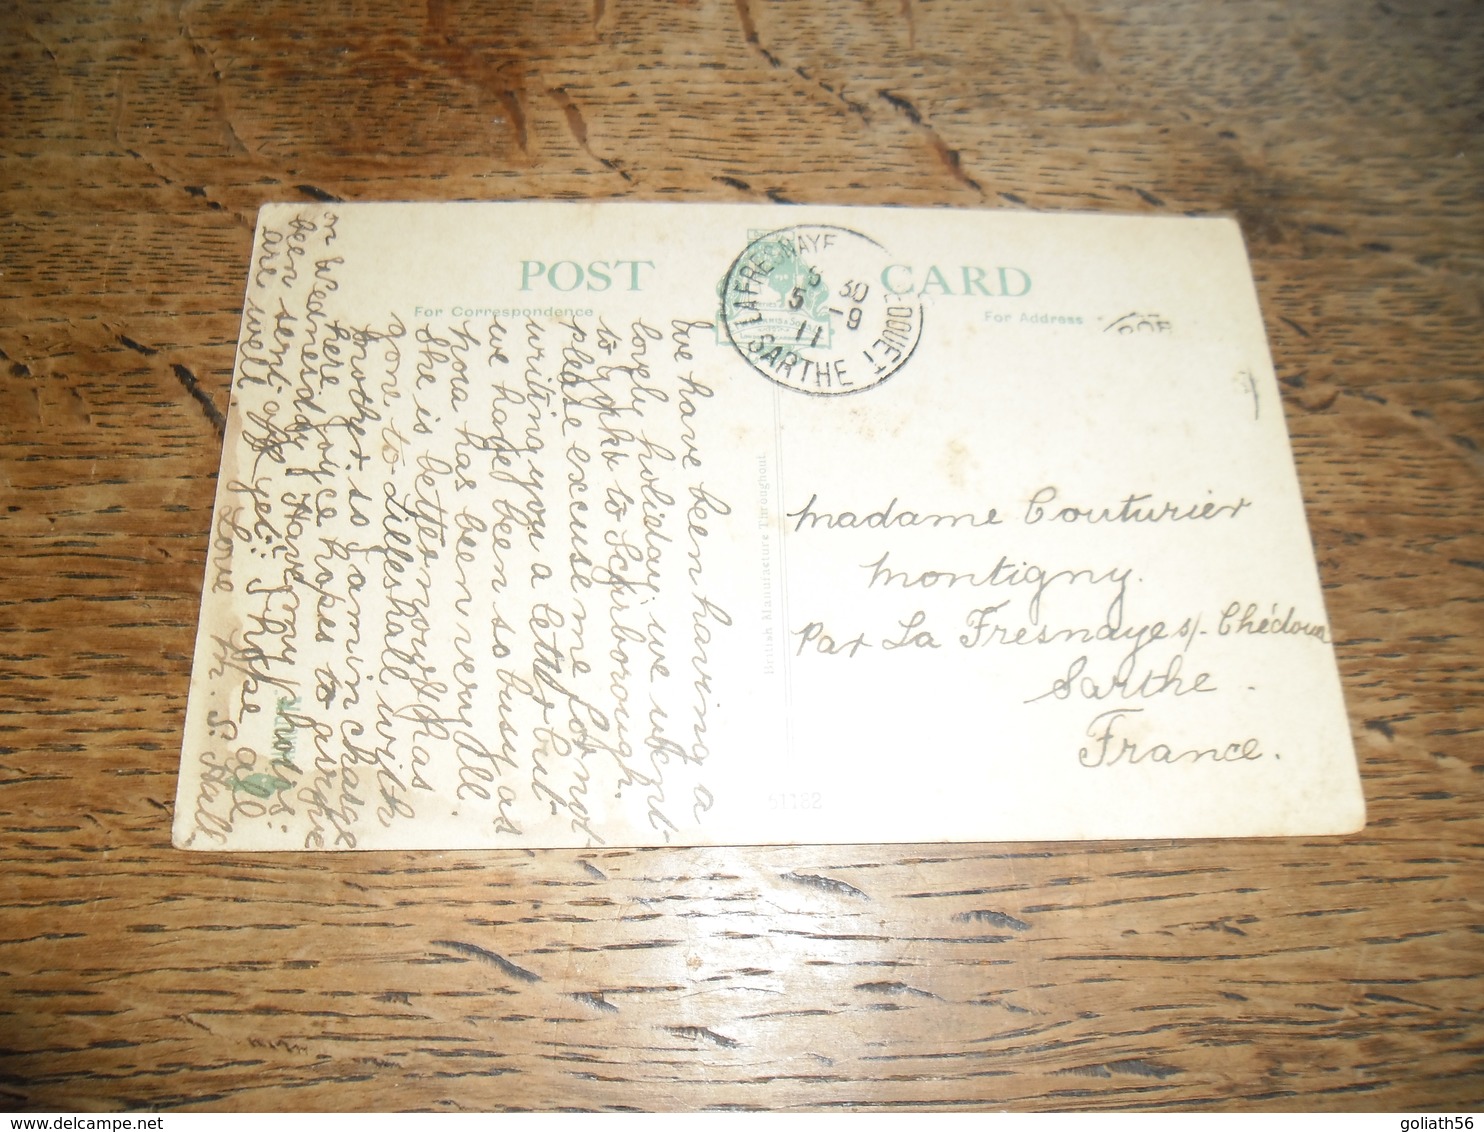 POST CARD
For Correspondence
For Address
LA FRESNAYE
5 30
5 - 9
11
SARTHE
British Manufacture Throughout
51182
we have been having a
lovely holiday we went
to to Scarborough.
please excuse me for not
writing you a letter but
we have been so busy as
has been very ill.
she is better now & has
gone to Lilleshall with
mother. is Jam in charge
here Joyce hopes to
on Wednesday Have my photos
been sent off yet. I hope all
are well.
Love M. S. Hall
Madame Couturier
Montigny.
Par La Fresnaye s/- Chédouet
Sarthe -
France.
goliath56